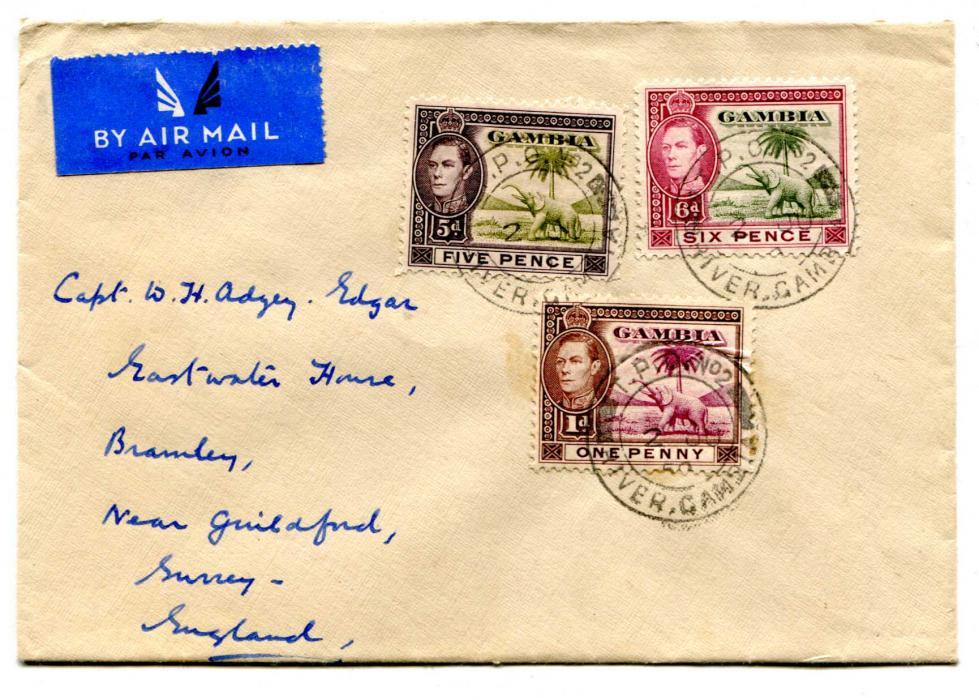 BY AIR MAIL
PAR AVION
GAMBIA
5d
FIVE PENCE
GAMBIA
6d
SIX PENCE
GAMBIA
1d
ONE PENNY
P.O. No2
RIVER, GAMBIA
P.O. No2
RIVER, GAMBIA
T.P.O. No2
RIVER, GAMBIA
Capt. W. H. Adgey-Edgar
Eastwater House,
Bramley,
Near Guildford,
Surrey -
England,